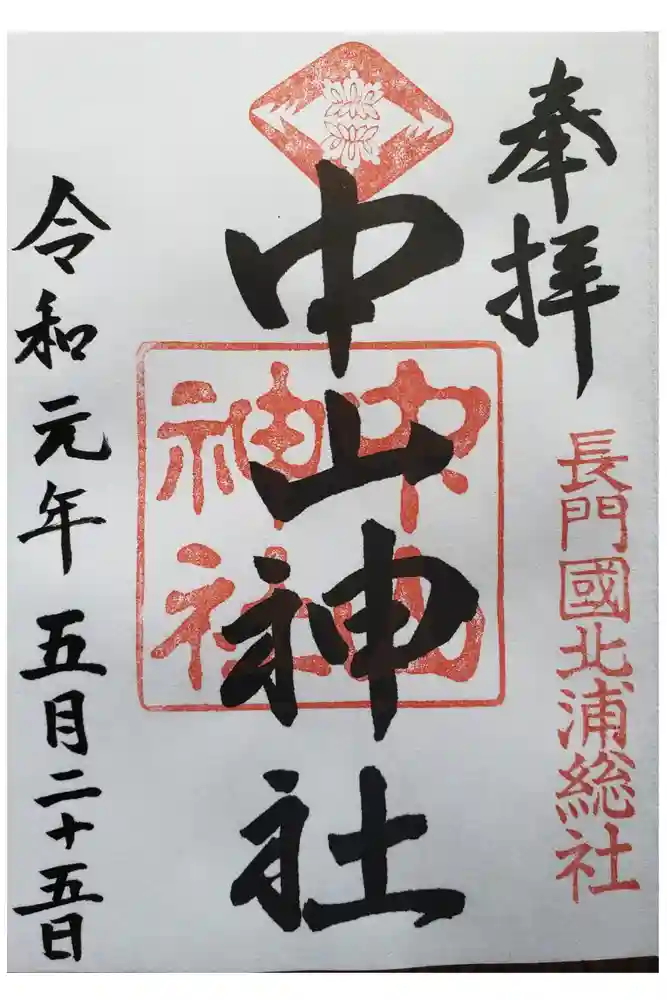 奉拝
長門國北浦総社
中山神社
中山神社
令和元年五月二十五日